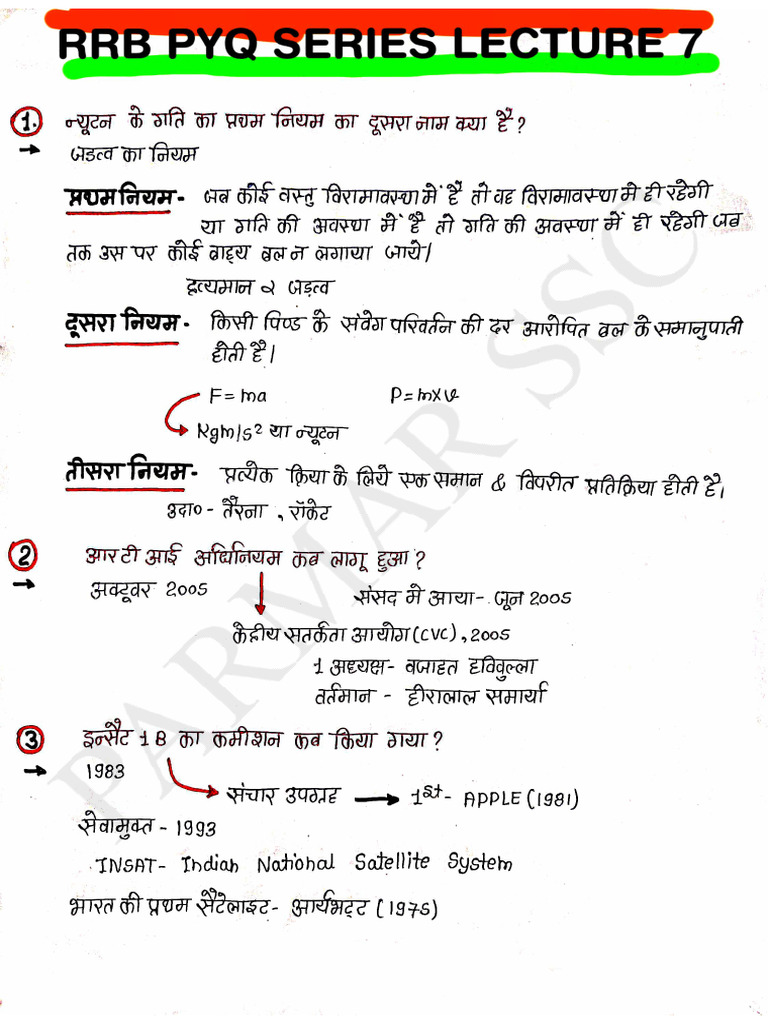 RRB PYQ SERIES LECTURE 7
1. न्यूटन के गति का प्रथम नियम का दूसरा नाम क्या है?
→ जडत्व का नियम
प्रथम नियम - जब कोई वस्तु विरामावस्था में है तो वह विरामावस्था मे ही रहेगी
या गति की अवस्था में है तो गति की अवस्था में ही रहेगी जब
तक उस पर कोई बाह्य बल न लगाया जाये।
द्रव्यमान α जड़त्व
दूसरा नियम - किसी पिण्ड के संवेग परिवर्तन की दर आरोपित बल के समानुपाती
होती है।
F = ma P = m×v
Kgm/s² या न्यूटन
तीसरा नियम - प्रत्येक क्रिया के लिये एक समान & विपरीत प्रतिक्रिया होती है।
उदा० - तैरना , रॉकेट
2 आर टी आई अधिनियम कब लागू हुआ ?
→ अक्टूवर 2005 संसद मे आया - जून 2005
केंद्रीय सतर्कता आयोग (CVC) , 2005
1 अध्यक्ष - वजाहत हविवुल्ला
वर्तमान - हीरालाल समार्या
3 इन्सैट 1B का कमीशन कब किया गया ?
→ 1983
संचार उपग्रह → 1st - APPLE (1981)
सेवामुक्त - 1993
INSAT - Indian National Satellite System
भारत की प्रथम सैटेलाइट - आर्यभट्ट (1975)
PARMAR SSC